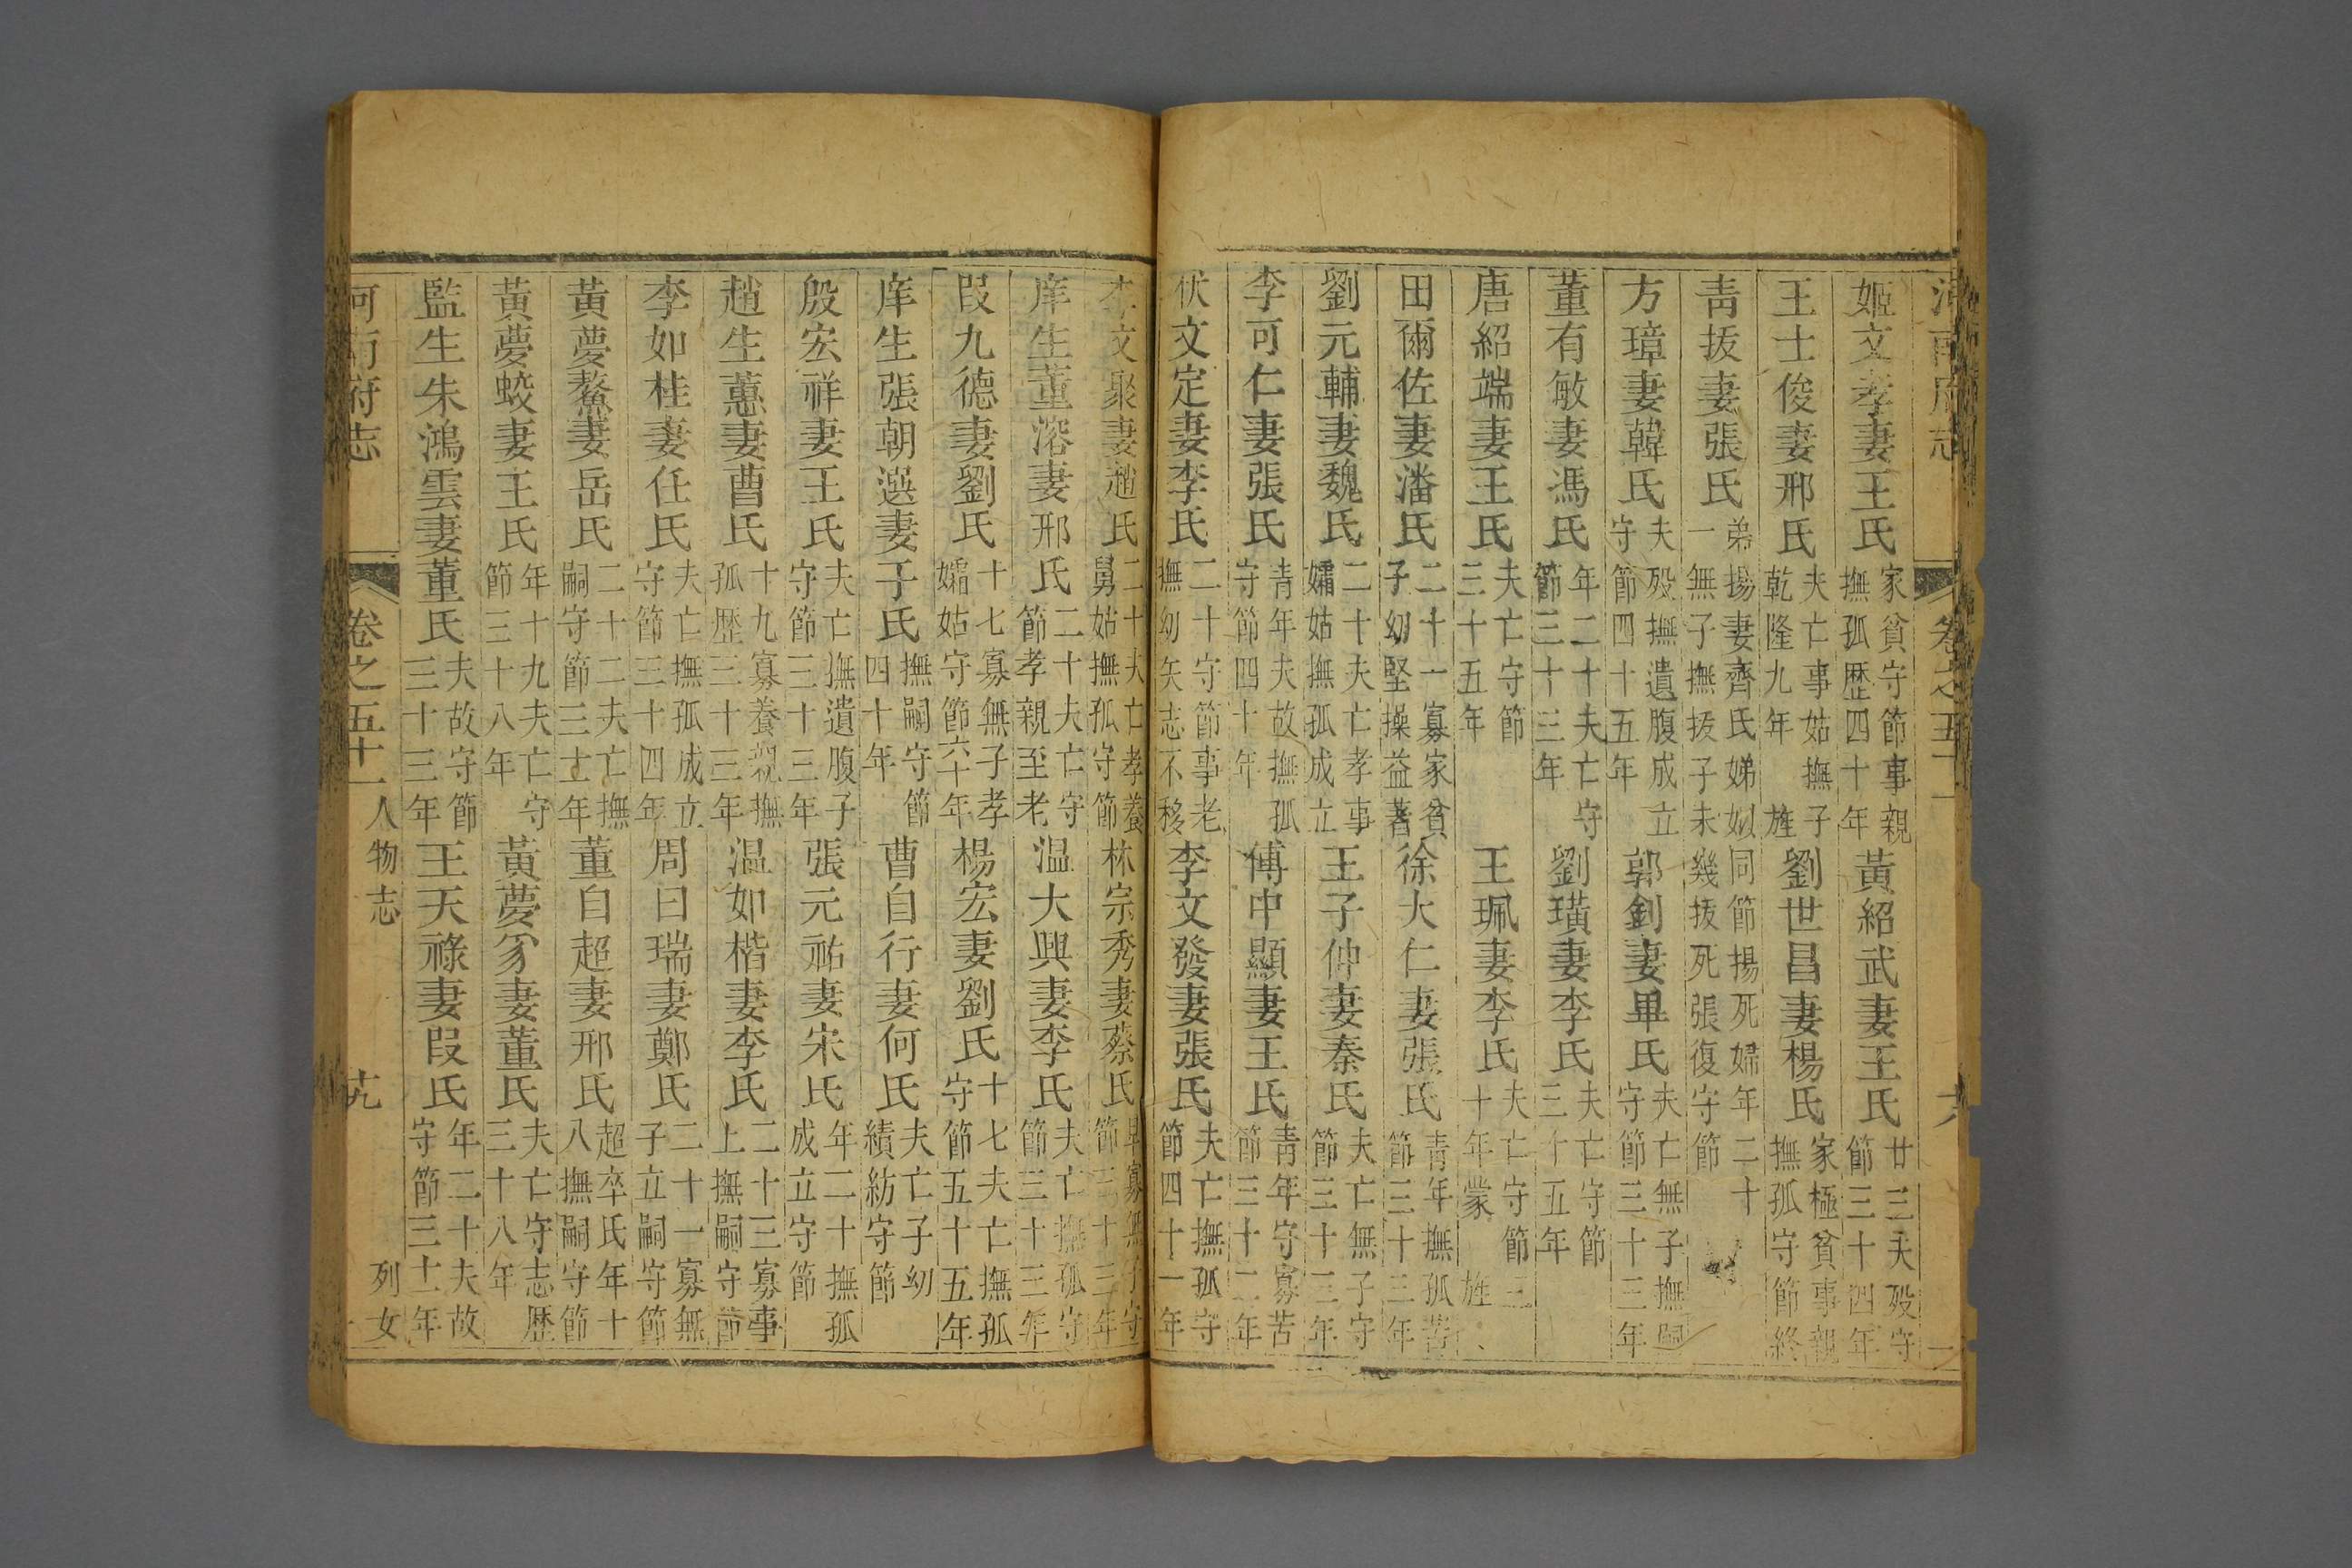 姬文孝妻王氏家貧守節事親撫孤歷四十年 黃紹武妻王氏廿三夫歿守節三十四年
王士俊妻邢氏夫亡事姑撫子乾隆九年旌 劉世昌妻楊氏家極貧事親撫孤守節終
靑拔妻張氏弟揚妻齊氏娣姒同節揚死婦年二十一無子撫拔子未幾拔死張復守節
方璋妻韓氏夫歿撫遺腹成立守節四十五年 郭釗妻畢氏夫亡無子撫嗣守節三十三年
董有敏妻馮氏年二十夫亡守節三十三年 劉璜妻李氏夫亡守節三十五年
唐紹端妻王氏夫亡守節三十五年 王珮妻李氏夫亡守節三十年蒙旌
田爾佐妻潘氏二十一寡家貧子幼堅操益著 徐大仁妻張氏靑年撫孤苦節三十三年
劉元輔妻魏氏二十夫亡孝事孀姑撫孤成立 王子仲妻秦氏夫亡無子守節三十三年
李可仁妻張氏靑年夫故撫孤守節四十年 傅中顯妻王氏靑年守寡苦節三十二年
伏文定妻李氏二十守節事老撫幼矢志不移 李文發妻張氏夫亡撫孤守節四十一年
李文聚妻趙氏二十夫亡孝養舅姑撫孤守節 林宗秀妻蔡氏早寡無子守節三十三年
庠生董溶妻邢氏二十夫亡守節孝親至老 温大興妻李氏夫亡撫孤守節三十三年
段九德妻劉氏十七寡無子孝孀姑守節六十年 楊宏妻劉氏十七夫亡撫孤守節五十五年
庠生張朝選妻于氏撫嗣守節四十年 曹自行妻何氏夫亡子幼績紡守節
殷宏祥妻王氏夫亡撫遺腹子守節三十三年 張元祐妻宋氏年二十撫孤成立守節
趙生蕙妻曹氏十九寡養親撫孤歷三十三年 温如楷妻李氏二十三寡事上撫嗣守節
李如桂妻任氏夫亡撫孤成立守節三十四年 周曰瑞妻鄭氏二十一寡無子立嗣守節
黃夢鰲妻岳氏二十二夫亡撫嗣守節三十年 董自超妻邢氏超卒氏年十八撫嗣守節
黃夢蛟妻王氏年十九夫亡守節三十八年 黃夢豸妻董氏夫亡守志歷三十八年
監生朱鴻雲妻董氏夫故守節三十三年 王天祿妻段氏年二十夫故守節三十二年
河南府志 卷之五十一 人物志 列女